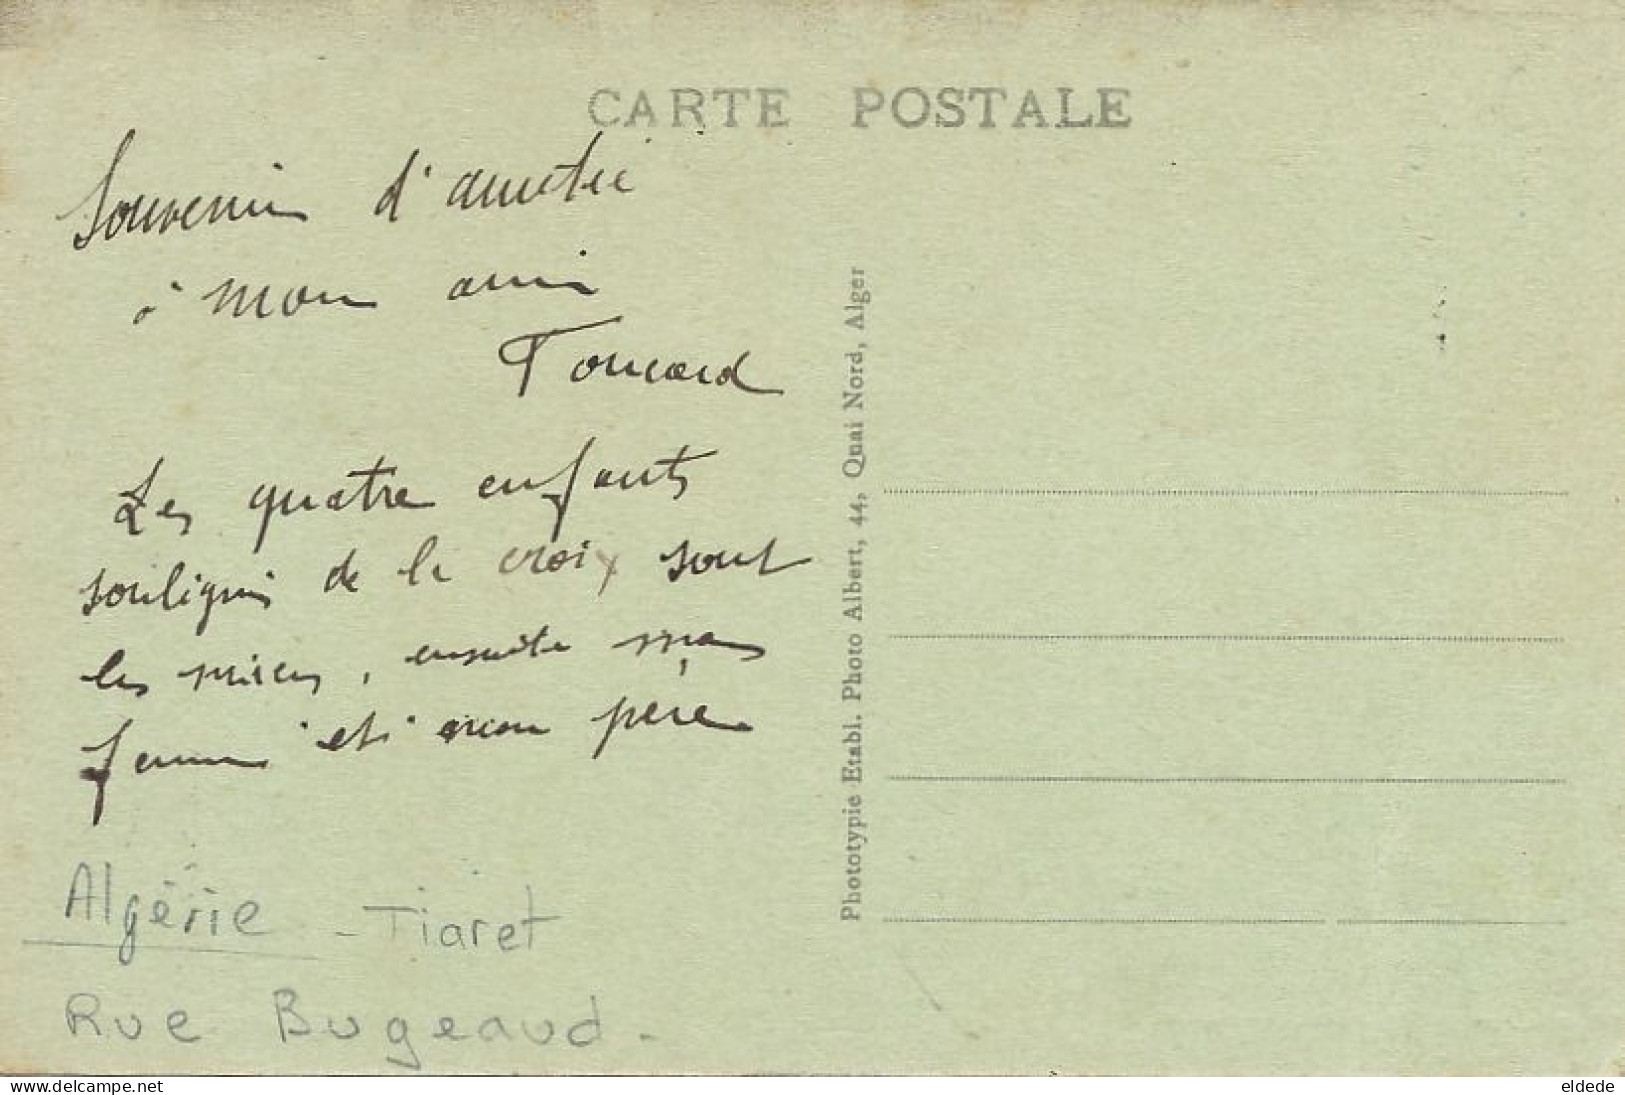 CARTE POSTALE
Souvenir d'amitié
à mon ami
Les quatre enfants
soulignés de la croix sont
les miens, ensuite ma
femme et mon père
Algérie - Tiaret
Rue Bugeaud -
Phototypie Etabl. Photo Albert, 44, Quai Nord, Alger
Delcampe.net
eldede